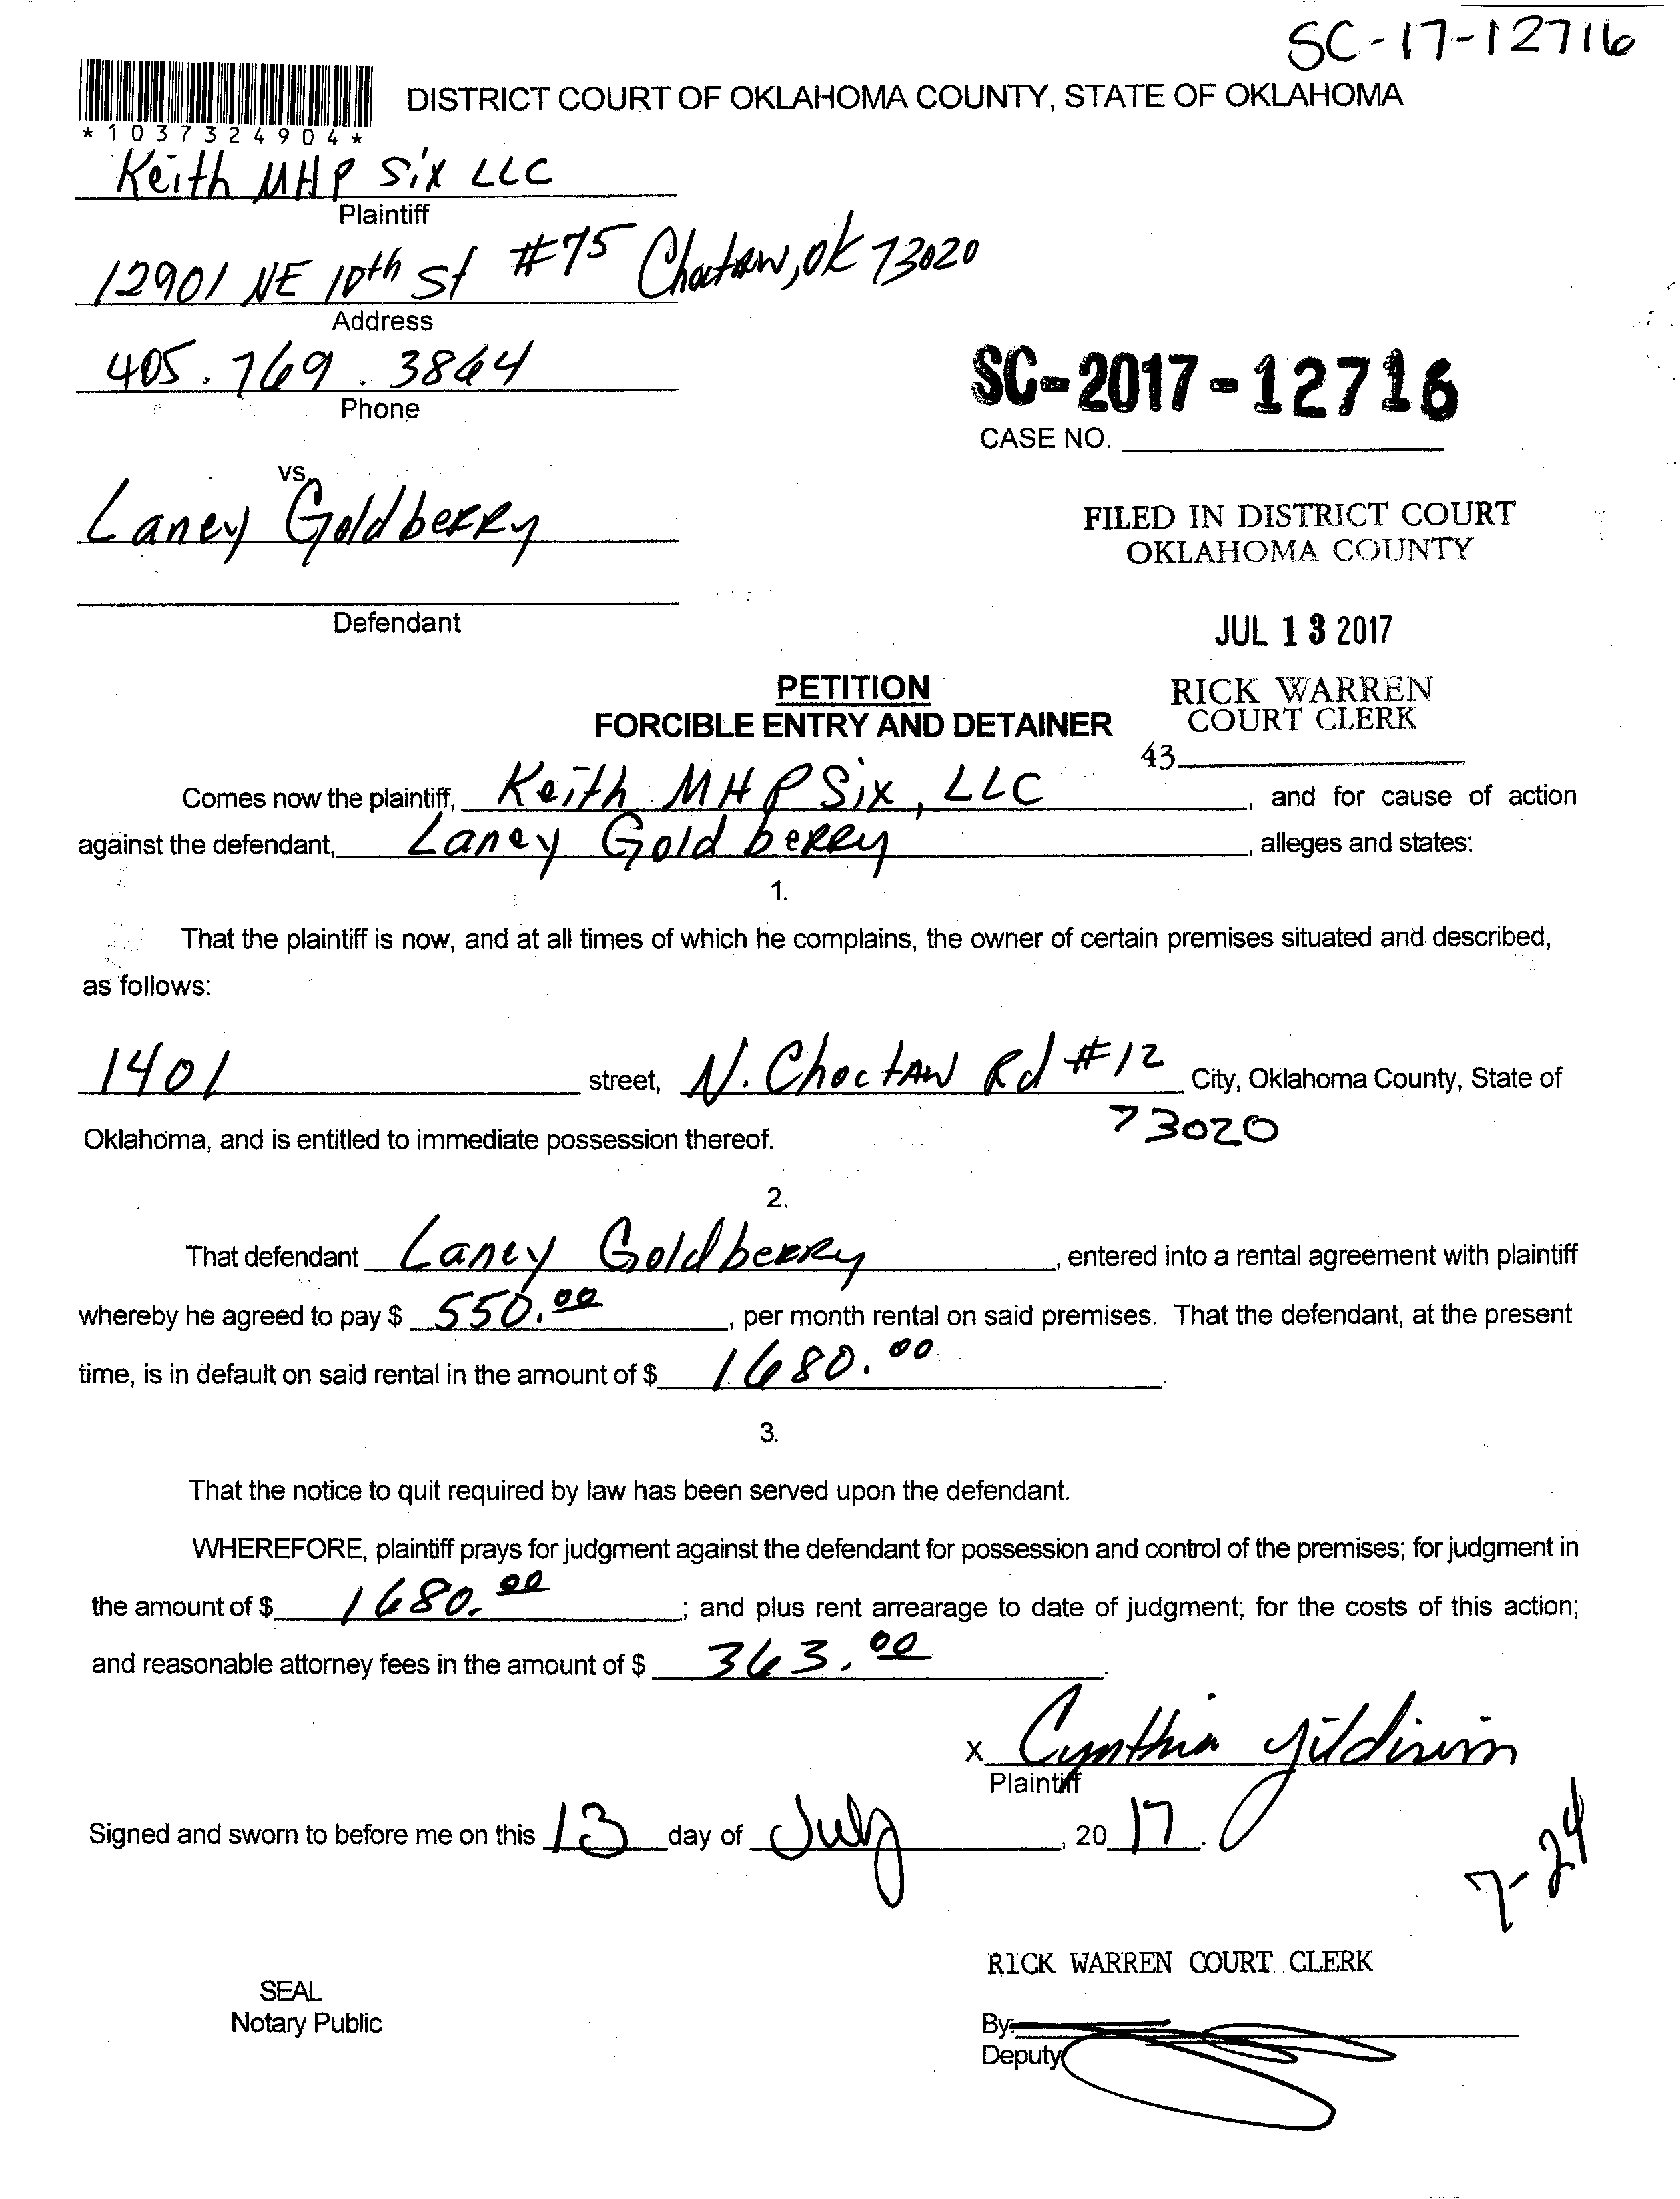 SC-17-12716
DISTRICT COURT OF OKLAHOMA COUNTY, STATE OF OKLAHOMA
*1037324904*
Keith MHP Six LLC
Plaintiff
12901 NE 10th St #75 Choctaw, OK 73020
Address
405.769.3864
Phone
SC-2017-12716
CASE NO.
vs.
Laney Goldberry
FILED IN DISTRICT COURT
OKLAHOMA COUNTY
Defendant
JUL 13 2017
PETITION
FORCIBLE ENTRY AND DETAINER
RICK WARREN
COURT CLERK
43
Comes now the plaintiff, Keith MHP Six, LLC, and for cause of action
against the defendant, Laney Goldberry, alleges and states:
1.
That the plaintiff is now, and at all times of which he complains, the owner of certain premises situated and described,
as follows:
1401 street, N. Choctaw Rd #12 City, Oklahoma County, State of
73020
Oklahoma, and is entitled to immediate possession thereof.
2.
That defendant Laney Goldberry, entered into a rental agreement with plaintiff
whereby he agreed to pay $ 550.00, per month rental on said premises. That the defendant, at the present
time, is in default on said rental in the amount of $ 1680.00.
3.
That the notice to quit required by law has been served upon the defendant.
WHEREFORE, plaintiff prays for judgment against the defendant for possession and control of the premises; for judgment in
the amount of $ 1680.00; and plus rent arrearage to date of judgment; for the costs of this action;
and reasonable attorney fees in the amount of $ 363.00.
x Cynthia Yildirim
Plaintiff
Signed and sworn to before me on this 13 day of July, 2017.
7-24
RICK WARREN COURT CLERK
SEAL
Notary Public
By:
Deputy